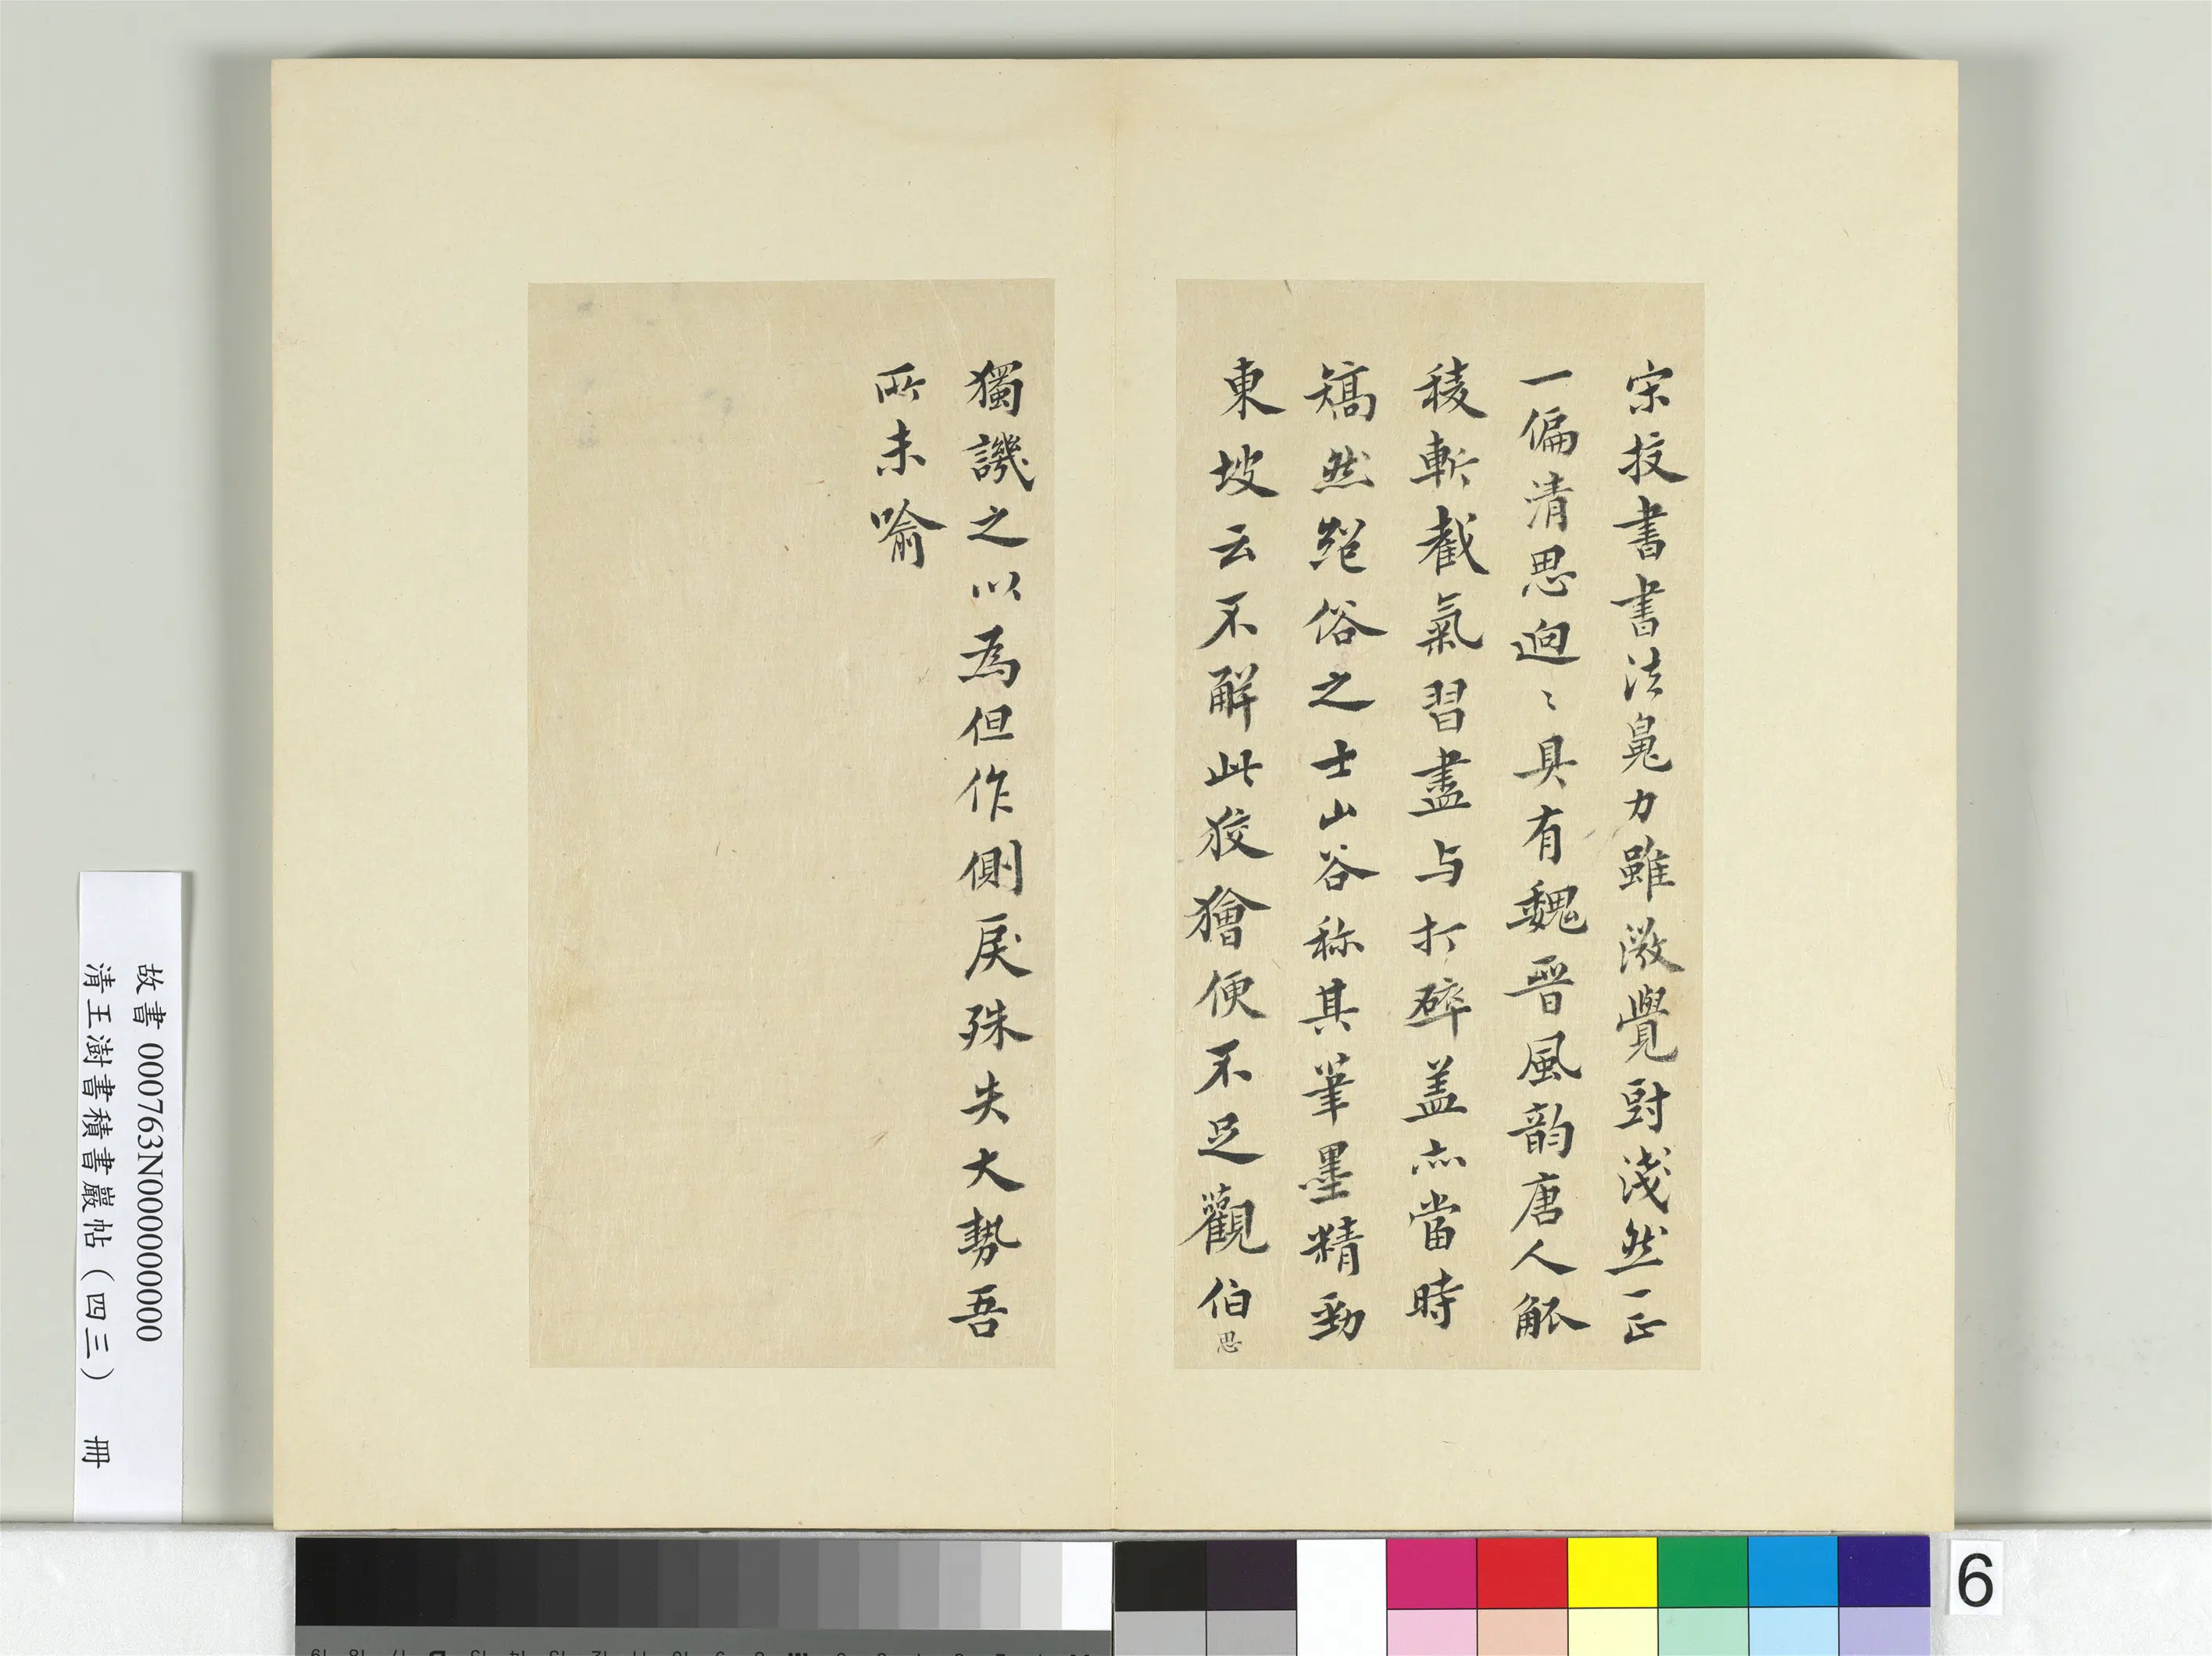 宋抆書書法鳧力雖激覺尌淺然一正
一偏清思迥〻具有魏晉風韵唐人觚
稜斬截氣習盡与打碎盖亦當時
矯然絕俗之士山谷称其筆墨精勁
東坡云不解此狡獪便不足觀伯思
獨譏之以為但作側戾殊失大勢吾
所未喻
故書 000763N000000000
清王澍書積書巖帖（四三） 冊
6